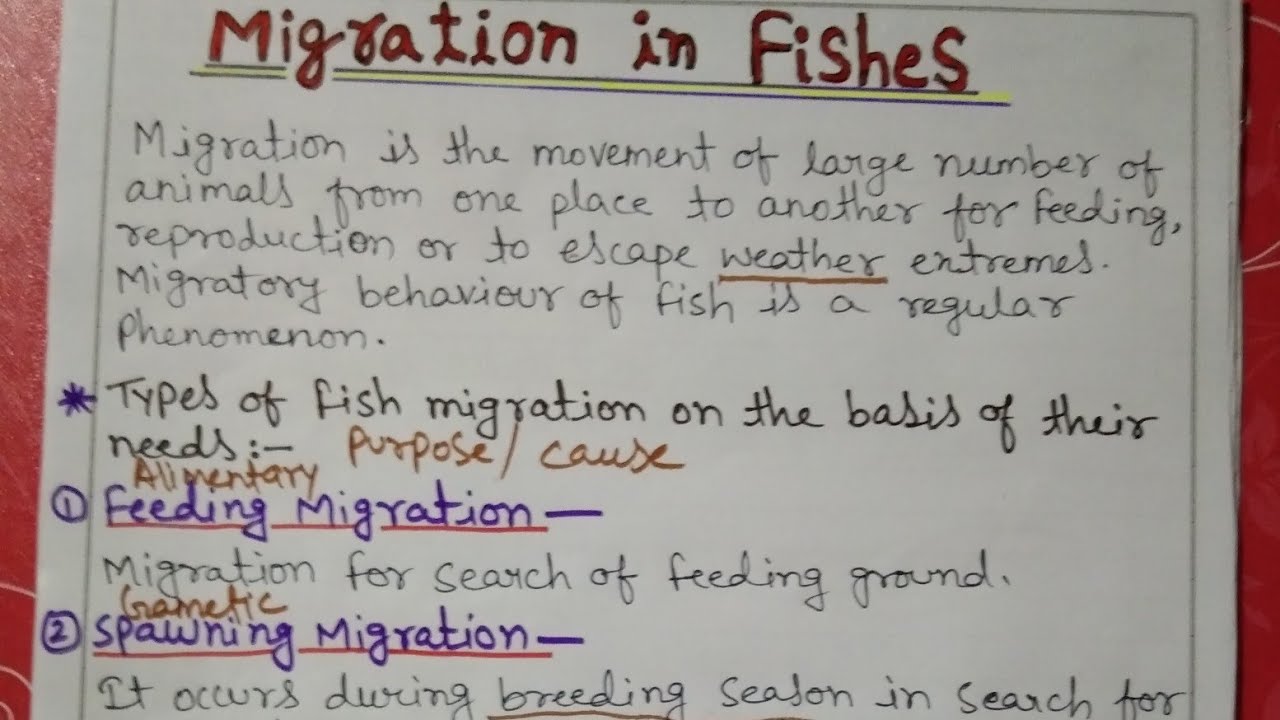 Migration in Fishes
Migration is the movement of large number of
animals from one place to another for feeding,
reproduction or to escape weather extremes.
Migratory behaviour of fish is a regular
phenomenon.
* Types of fish migration on the basis of their
needs:- Purpose/ cause
Alimentary
① Feeding Migration —
Migration for search of feeding ground.
Gametic
② Spawning Migration —
It occurs during breeding season in search for